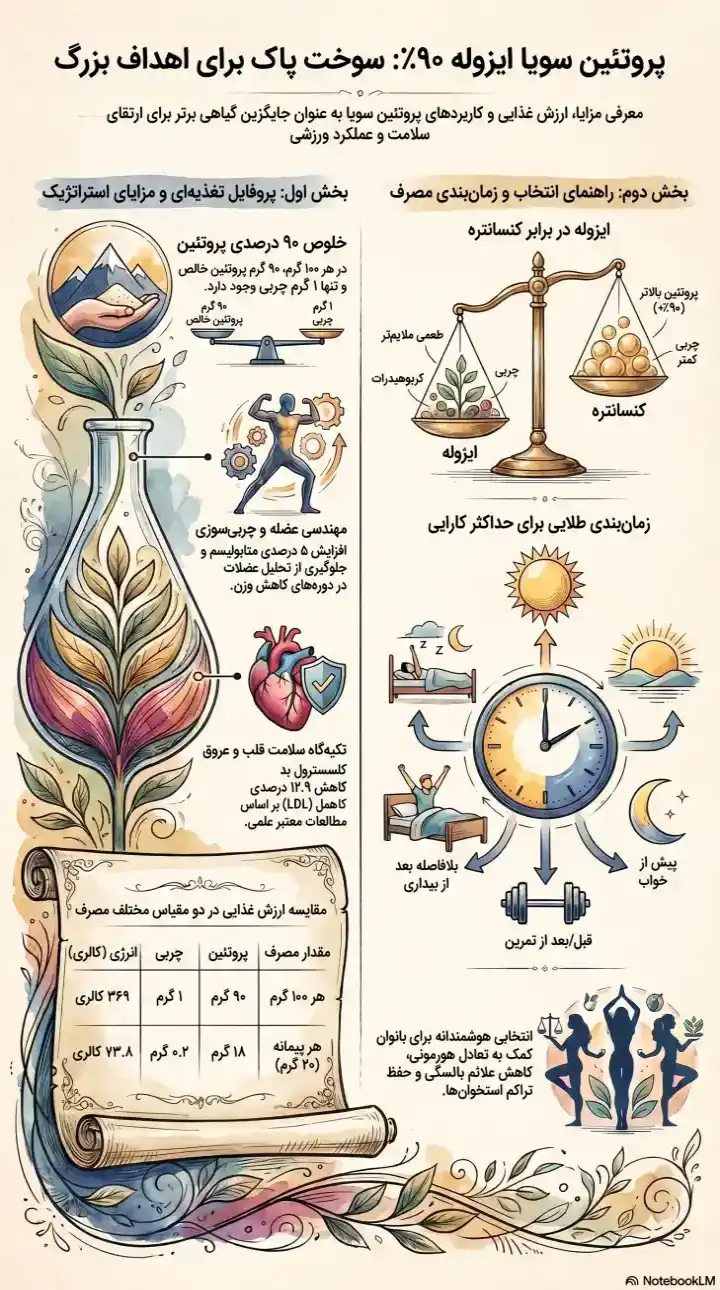 پروتئین سویا ایزوله ۹۰٪: سوخت پاک برای اهداف بزرگ
معرفی مزایا، ارزش غذایی و کاربردهای پروتئین سویا به عنوان جایگزین گیاهی برتر برای ارتقای
سلامت و عملکرد ورزشی
بخش اول: پروفایل تغذیه‌ای و مزایای استراتژیک
خلوص ۹۰ درصدی پروتئین
در هر ۱۰۰ گرم، ۹۰ گرم پروتئین خالص
و تنها ۱ گرم چربی وجود دارد.
۱ گرم
چربی
۹۰ گرم
پروتئین خالص
مهندسی عضله و چربی‌سوزی
افزایش ۵ درصدی متابولیسم و
جلوگیری از تحلیل عضلات
در دوره‌های کاهش وزن.
تکیه‌گاه سلامت قلب و عروق
کلسترول بد
کاهش ۱۲.۹ درصدی
کاهمل (LDL) بر اساس
مطالعات معتبر علمی.
مقایسه ارزش غذایی در دو مقیاس مختلف مصرف
مقدار مصرف پروتئین چربی انرژی (کالری)
هر ۱۰۰ گرم ۹۰ گرم ۱ گرم ۳۶۹ کالری
هر پیمانه
(۲۰ گرم) ۱۸ گرم ۰.۲ گرم ۷۳.۸ کالری
بخش دوم: راهنمای انتخاب و زمان‌بندی مصرف
ایزوله در برابر کنسانتره
پروتئین بالاتر
(+۹۰٪)
چربی
کمتر
کنسانتره
طعمی ملایم‌تر
کربوهیدرات
چربی
ایزوله
زمان‌بندی طلایی برای حداکثر کارایی
z z
پیش از
خواب
بلافاصله بعد
از بیداری
قبل/بعد از تمرین
انتخابی هوشمندانه برای بانوان
کمک به تعادل هورمونی،
کاهش علائم یائسگی و حفظ
تراکم استخوان‌ها.
NotebookLM